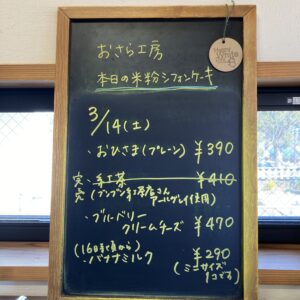 おさら工房
本日の米粉シフォンケーキ
3/14(土)
・おひさま(プレーン) ¥390
・紅茶 ¥410
(ブンブン紅茶店さんアールグレイ使用)
・ブルーベリークリームチーズ ¥470
(16日頃から)
・バナナミルク ¥290
(ミニサイズ1コです)